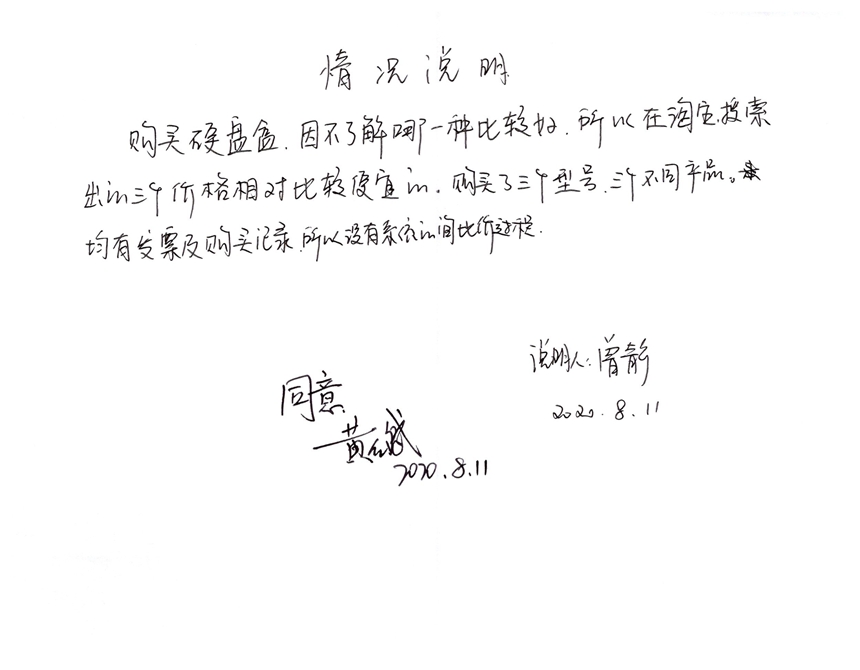 情况说明
购买硬盘盒,因不了解哪一种比较好,所以在淘宝搜索
出的三个价格相对比较便宜的,购买了三个型号,三个不同产品。
均有发票及购买记录,所以没有系统的询比价过程.
说明人:曾静
2020.8.11
同意
黄
2020.8.11